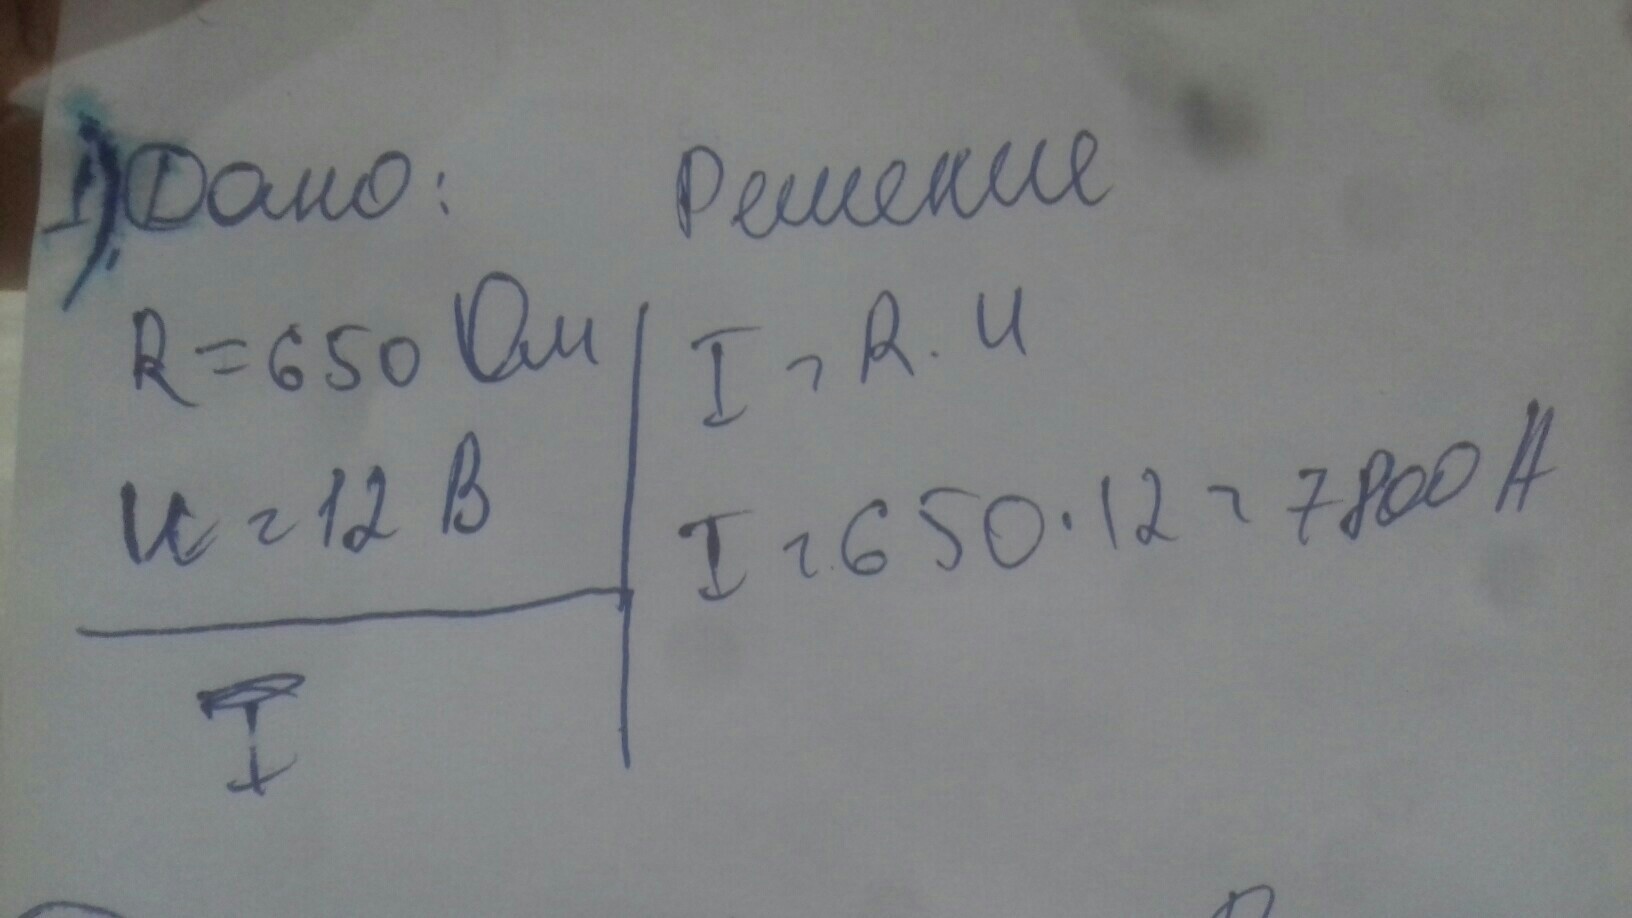 1) Дано: Решение
R = 650 Ом I = R · U
U = 12 В I = 650 · 12 = 7800 А
I